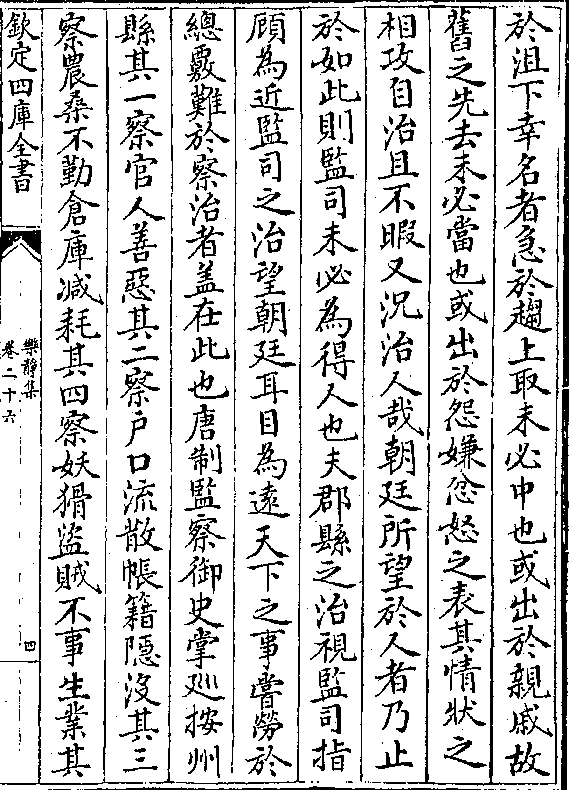 於沮下幸名者急於趨上取未必中也或出於親戚故
舊之先去未必當也或出於怨嫌忿怒之表其情狀之
相攻自治且不暇又況治人哉朝廷所望於人者乃止
於如此則監司未必為得人也夫郡縣之治視監司指
顧為近監司之治望朝廷耳目為遠天下之事嘗勞於
總覈難於察治者盖在此也唐制監察御史掌廵按州
縣其一察官人善惡其二察户口流散帳籍隠沒其三
察農桑不勤倉庫減耗其四察妖猾盜賊不事生業其
欽定四庫全書
樂靜集
卷二十六
四